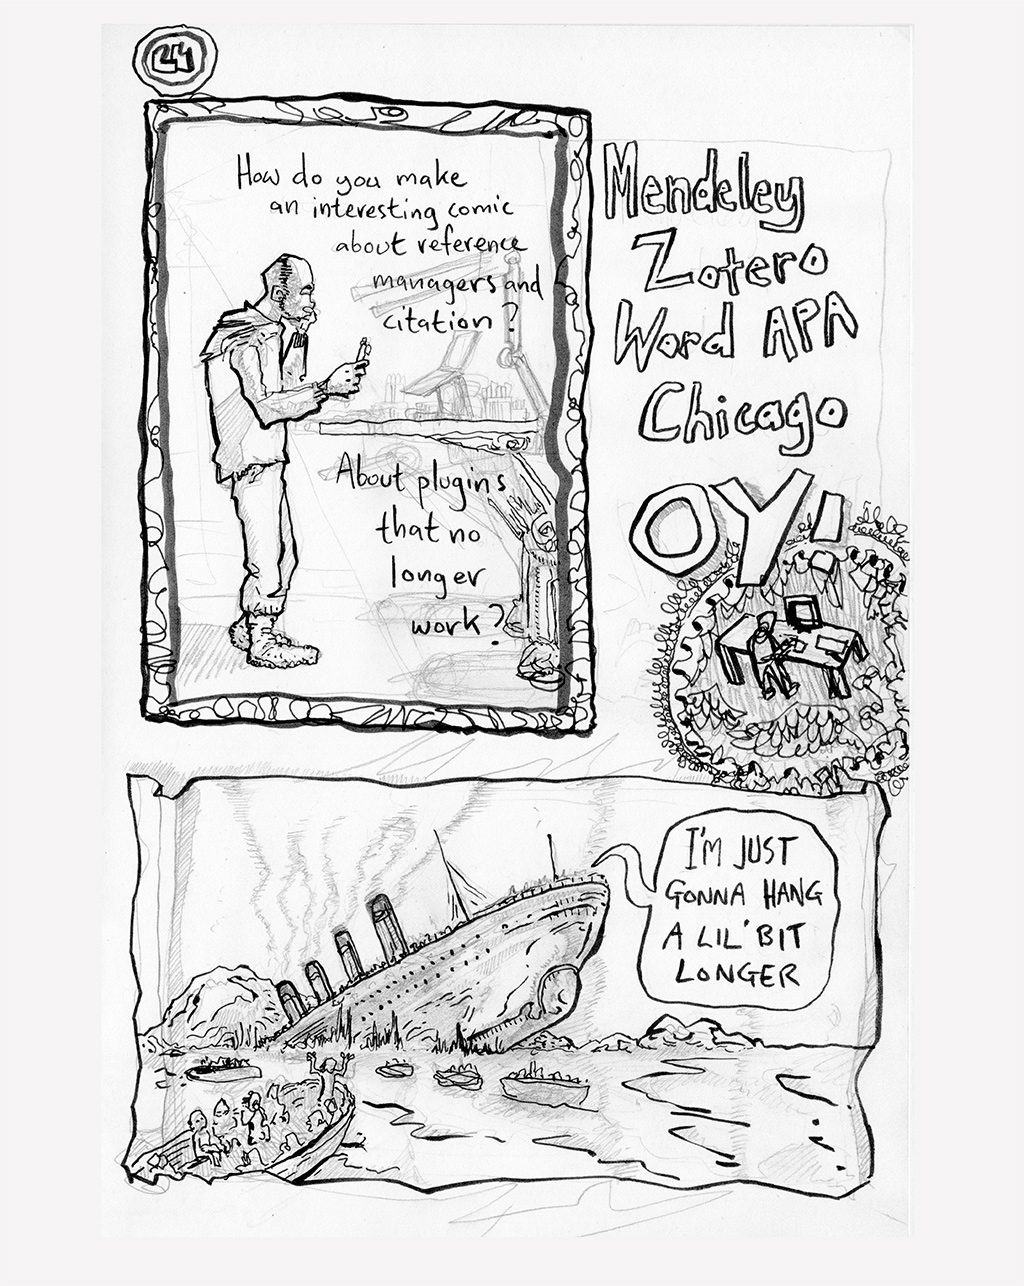 24
How do you make
an interesting comic
about reference
managers and
citation?
About plugins
that no
longer
work?
Mendeley
Zotero
Word APA
Chicago
OY!
I'M JUST
GONNA HANG
A LIL' BIT
LONGER